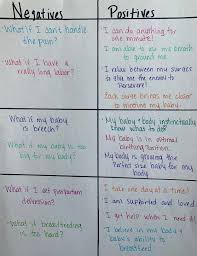 Negatives
Positives
- What if I can't handle
the pain?
- What if I have a
really long labor?
I can do anything for
one minute!
I am able to use my breath
to ground me
I relax between my surges
to give me the energy to
persevere!
Each surge brings me closer
to meeting my baby.
What if my baby
is breech?
What if my baby is too
big for my body?
My baby + body instinctually
know what to do!
My baby is in optimal
birthing position.
My baby is growing the
perfect size baby for my
body
- What if I get postpartum
depression?
- What if breastfeeding
is too hard?
I take one day at a time!
I am supported and loved
I get help when I need it!
I believe in my body &
baby's ability to
breastfeed